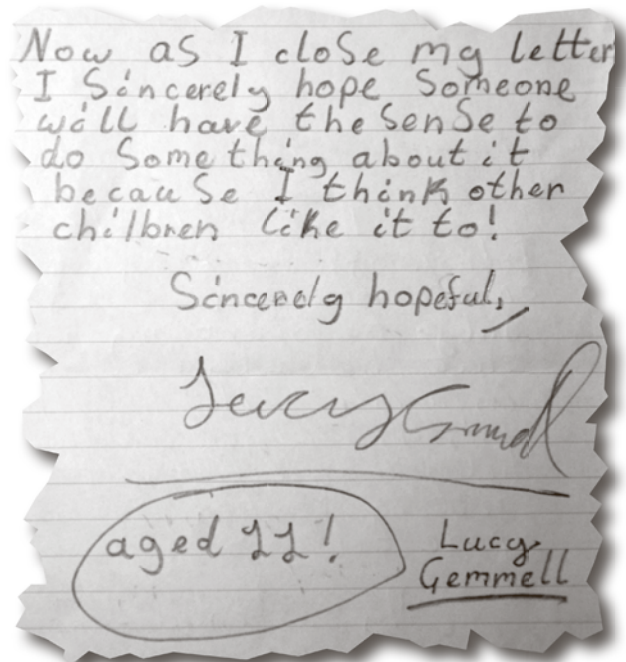 Now as I close my letter
I Sincerely hope Someone
will have the SenSe to
do Something about it
becauSe I think other
chilbren like it to!
Sincerely hopeful,
Lucy Gemmell
aged 11!
Lucy
Gemmell